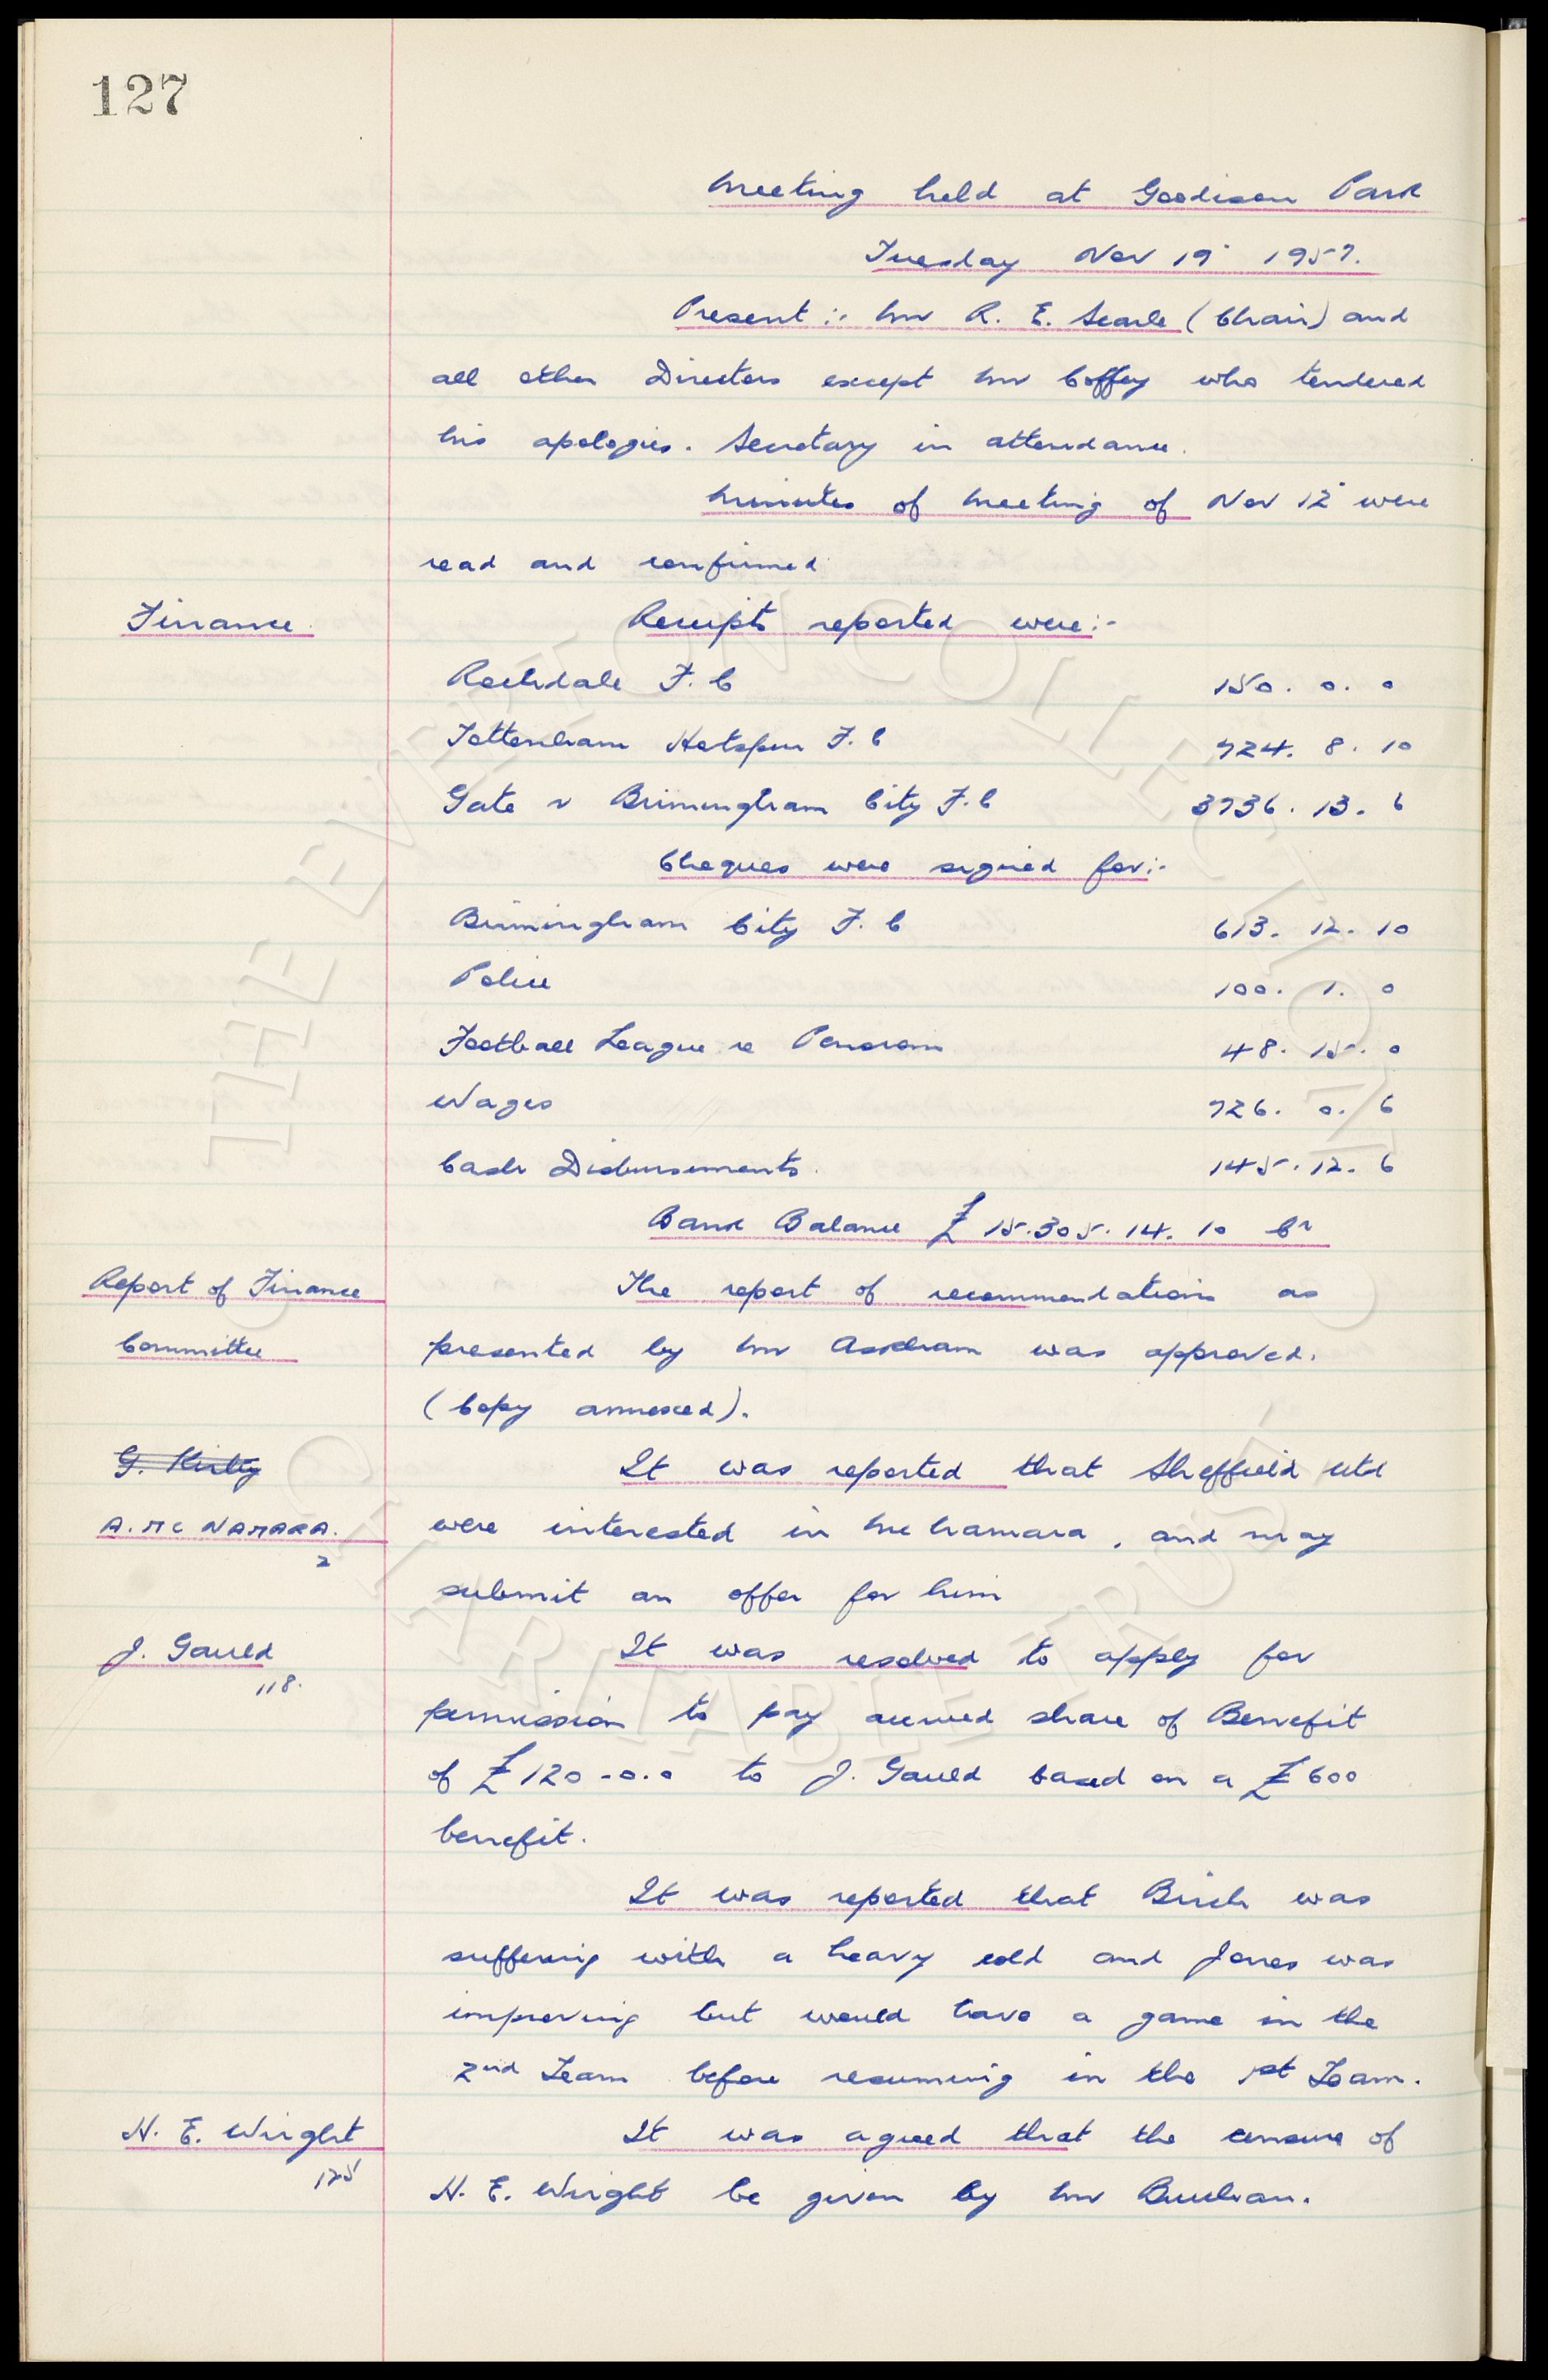 127
Meeting held at Goodison Park
Tuesday Nov 19" 1957.
Present :- Mr R. E. Searle (Chair) and
all other Directors except Mr Coffey who tendered
his apologies. Secretary in attendance.
Minutes of Meeting of Nov 12" were
read and confirmed
Finance. Receipts reported were:-
Rochdale F. C 150. 0. 0
Tottenham Hotspur F. C 724. 8. 10
Gate v Birmingham City F. C 3736. 13. 6
Cheques were signed for:-
Birmingham City F. C 613. 12. 10
Police 100. 1. 0
Football League re Pensions 48. 15. 0
Wages 726. 0. 6
Cash Disbursements. 145. 12. 6
Bank Balance £15.305. 14. 10 Cr
Report of Finance The report of recommendations as
Committee presented by Mr Askham was approved.
(Copy annexed).
G. Kirby It was reported that Sheffield Utd
A. Mc NAMARA. were interested in McNamara, and may
2
submit an offer for him
J. Gauld It was resolved to apply for
118.
permission to pay accrued share of Benefit
of £120-0.0 to J. Gauld based on a £600
benefit.
It was reported that Birch was
suffering with a heavy cold and Jones was
improving but would have a game in the
2nd Team before resuming in the 1st Team.
H. E. Wright It was agreed that the censure of
125
H. E. Wright be given by Mr Buchan.
THE EVERTON COLLECTION
CHARITABLE TRUST